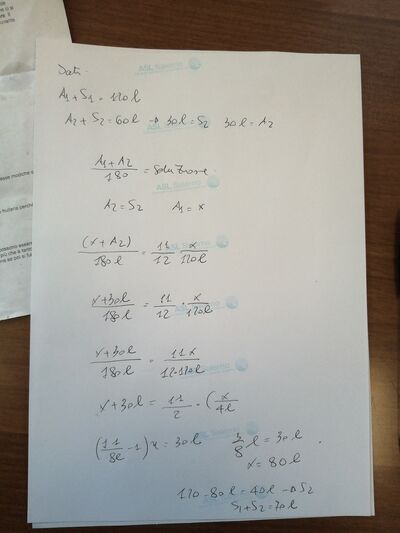 Dati
A₁ + S₁ = 120 l
A₂ + S₂ = 60 l → 30 l = S₂ 30 l = A₂
ASL Salerno
(A₁ + A₂) / 180 = soluzione.
A₂ = S₂ A₁ = x
(x + A₂) / 180 l = 11/12 · x / 120 l
(x + 30 l) / 180 l = 11/12 · x / 120 l
(x + 30 l) / 180 l = 11x / 12·120 l
x + 30 l = 11/2 · (x / 4 l
(11/8l - 1) x = 30 l 3/8 l = 30 l
x = 80 l
120 - 80 l = 40 l → S₂
S₁ + S₂ = 70 l